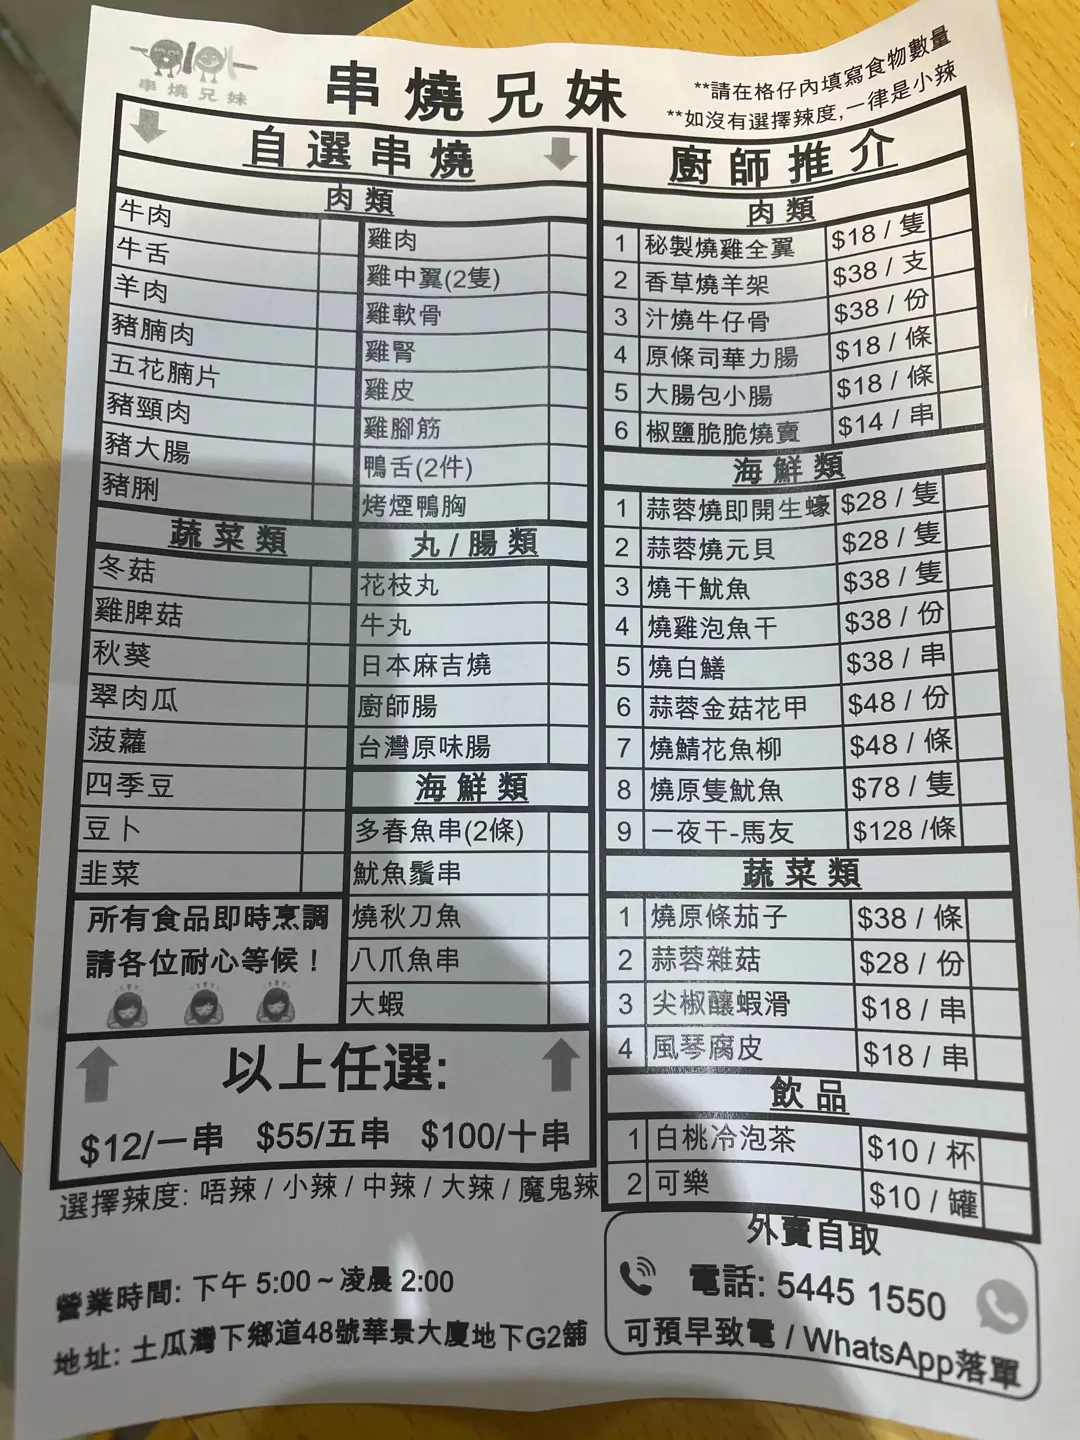 串燒兄妹
串燒兄妹
**請在格仔內填寫食物數量
**如沒有選擇辣度,一律是小辣
自選串燒
肉類
牛肉
牛舌
羊肉
豬腩肉
五花腩片
豬頸肉
豬大腸
豬脷
雞肉
雞中翼(2隻)
雞軟骨
雞腎
雞皮
雞腳筋
鴨舌(2件)
烤煙鴨胸
蔬菜類
冬菇
雞脾菇
秋葵
翠肉瓜
菠蘿
四季豆
豆卜
韭菜
丸/腸類
花枝丸
牛丸
日本麻吉燒
廚師腸
台灣原味腸
海鮮類
多春魚串(2條)
魷魚鬚串
燒秋刀魚
八爪魚串
大蝦
所有食品即時烹調
請各位耐心等候!
以上任選:
$12/一串 $55/五串 $100/十串
選擇辣度: 唔辣 / 小辣 / 中辣 / 大辣 / 魔鬼辣
營業時間: 下午 5:00 ~ 凌晨 2:00
地址: 土瓜灣下鄉道48號華景大廈地下G2舖
廚師推介
肉類
1 秘製燒雞全翼 $18 / 隻
2 香草燒羊架 $38 / 支
3 汁燒牛仔骨 $38 / 份
4 原條司華力腸 $18 / 條
5 大腸包小腸 $18 / 條
6 椒鹽脆脆燒賣 $14 / 串
海鮮類
1 蒜蓉燒即開生蠔 $28 / 隻
2 蒜蓉燒元貝 $28 / 隻
3 燒干魷魚 $38 / 隻
4 燒雞泡魚干 $38 / 份
5 燒白鱔 $38 / 串
6 蒜蓉金菇花甲 $48 / 份
7 燒鯖花魚柳 $48 / 條
8 燒原隻魷魚 $78 / 隻
9 一夜干-馬友 $128 /條
蔬菜類
1 燒原條茄子 $38 / 條
2 蒜蓉雜菇 $28 / 份
3 尖椒釀蝦滑 $18 / 串
4 風琴腐皮 $18 / 串
飲品
1 白桃冷泡茶 $10 / 杯
2 可樂 $10 / 罐
外賣自取
電話: 5445 1550
可預早致電 / WhatsApp落單